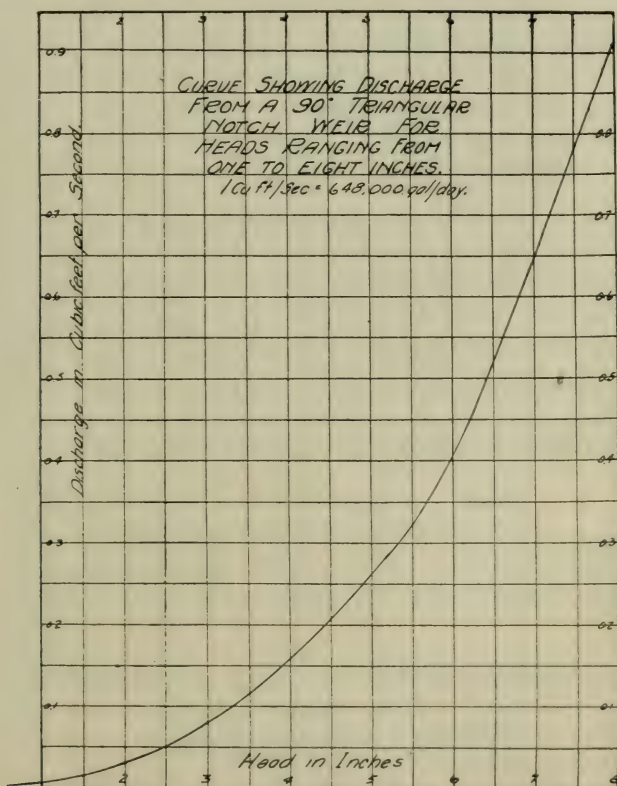 2 3 4 5 6 7
CURVE SHOWING DISCHARGE
FROM A 90° TRIANGULAR
NOTCH WEIR FOR
HEADS RANGING FROM
ONE TO EIGHT INCHES.
1 Cu ft/Sec = 648,000 gal/day.
Discharge in Cubic feet per Second.
0.9
0.8
0.7
0.6
0.5
0.4
0.3
0.2
0.1
0.8
0.7
0.6
0.5
0.4
0.3
0.2
0.1
Head in Inches
2 3 4 5 6 7 8